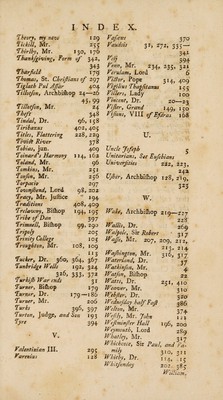 INDEX.
Theory, my new 129
Tickell, Mr. 255
Thirlby, Mr. 130, 179
Thanksgiving, Form of 342, 343
Thetfield 179
Thomas, St. Christians of 297
Tiglath Pul Assar 404
Tillotson, Archbishop 24—26
45, 99
Tillotson, Mr. 24
Theft 348
Tindal, Dr. 96, 158
Tiribazus 402, 405
Titles, Flattering 228, 229
Tivist River 378
Tobias, jun. 404
Toinard's Harmony 114, 160
Toland, Mr. 96
Tomkins, Mr. 251
Tonson, Mr. 251
Torpacio 297
Townshend, Lord 98, 202
Tracy, Mr. Justice 194
Traditions 406, 409
Trelawny, Bishop 194, 195
Tribe of Dan 397
Trimnell, Bishop 99, 220
Tripoly 205
Trinity College 105
Troughton, Mr. 108, 109
113
Tucker, Dr. 360, 364, 367
Tunbridge Wells 192, 324
326, 333, 372
Turkish War ends 31
Turner, Bishop 179
Turner, Dr. 179—186
Turner, Mr. 200
Turks 396, 397
Turton, Judge, and Son 193
Tyre 394
V.
Valentinian III. 295
Varenius 128
Vasenæ 370
Vaudois 31, 272, 335—342
Veil 394
Venn, Mr. 234, 235, 321
Verulam, Lord 6
Victor, Pope 314, 409
Vigilius Thapsitanus 155
Villers, Lady 100
Vincent, Dr. 20—23
Vister, Grand 149, 150
Visions, VIII of Esdras 168
U.
Uncle Joseph 5
Unitarians, Sat Eusebians
Universities 222, 223, 242
Usher, Archbishop 128, 219, 325
W.
Wake, Archbishop 219—227
228
Wallis, Dr. 269
Walpole, Sir Robert 317
Wasse, Mr. 207, 209, 212, 213, 214
Washington, Mr. 316, 317
Waterland, Mr. 37
Watkins, Mr. 4
Watson, Bishop 22
Watts, Dr. 251, 410
Weaver, Mr. 310
Webster, Dr. 320
Wednesday half Fast 386
Welton, Mr. 374
Westly, Mr. John 121
Westminster Hall 196, 200
Weymouth, Lord 289
Whatley, Mr. 317
Whichcote, Sir Paul, and Family 310, 311
Whitby, Dr. 115, 119
Whitsunday 202, 385
William,